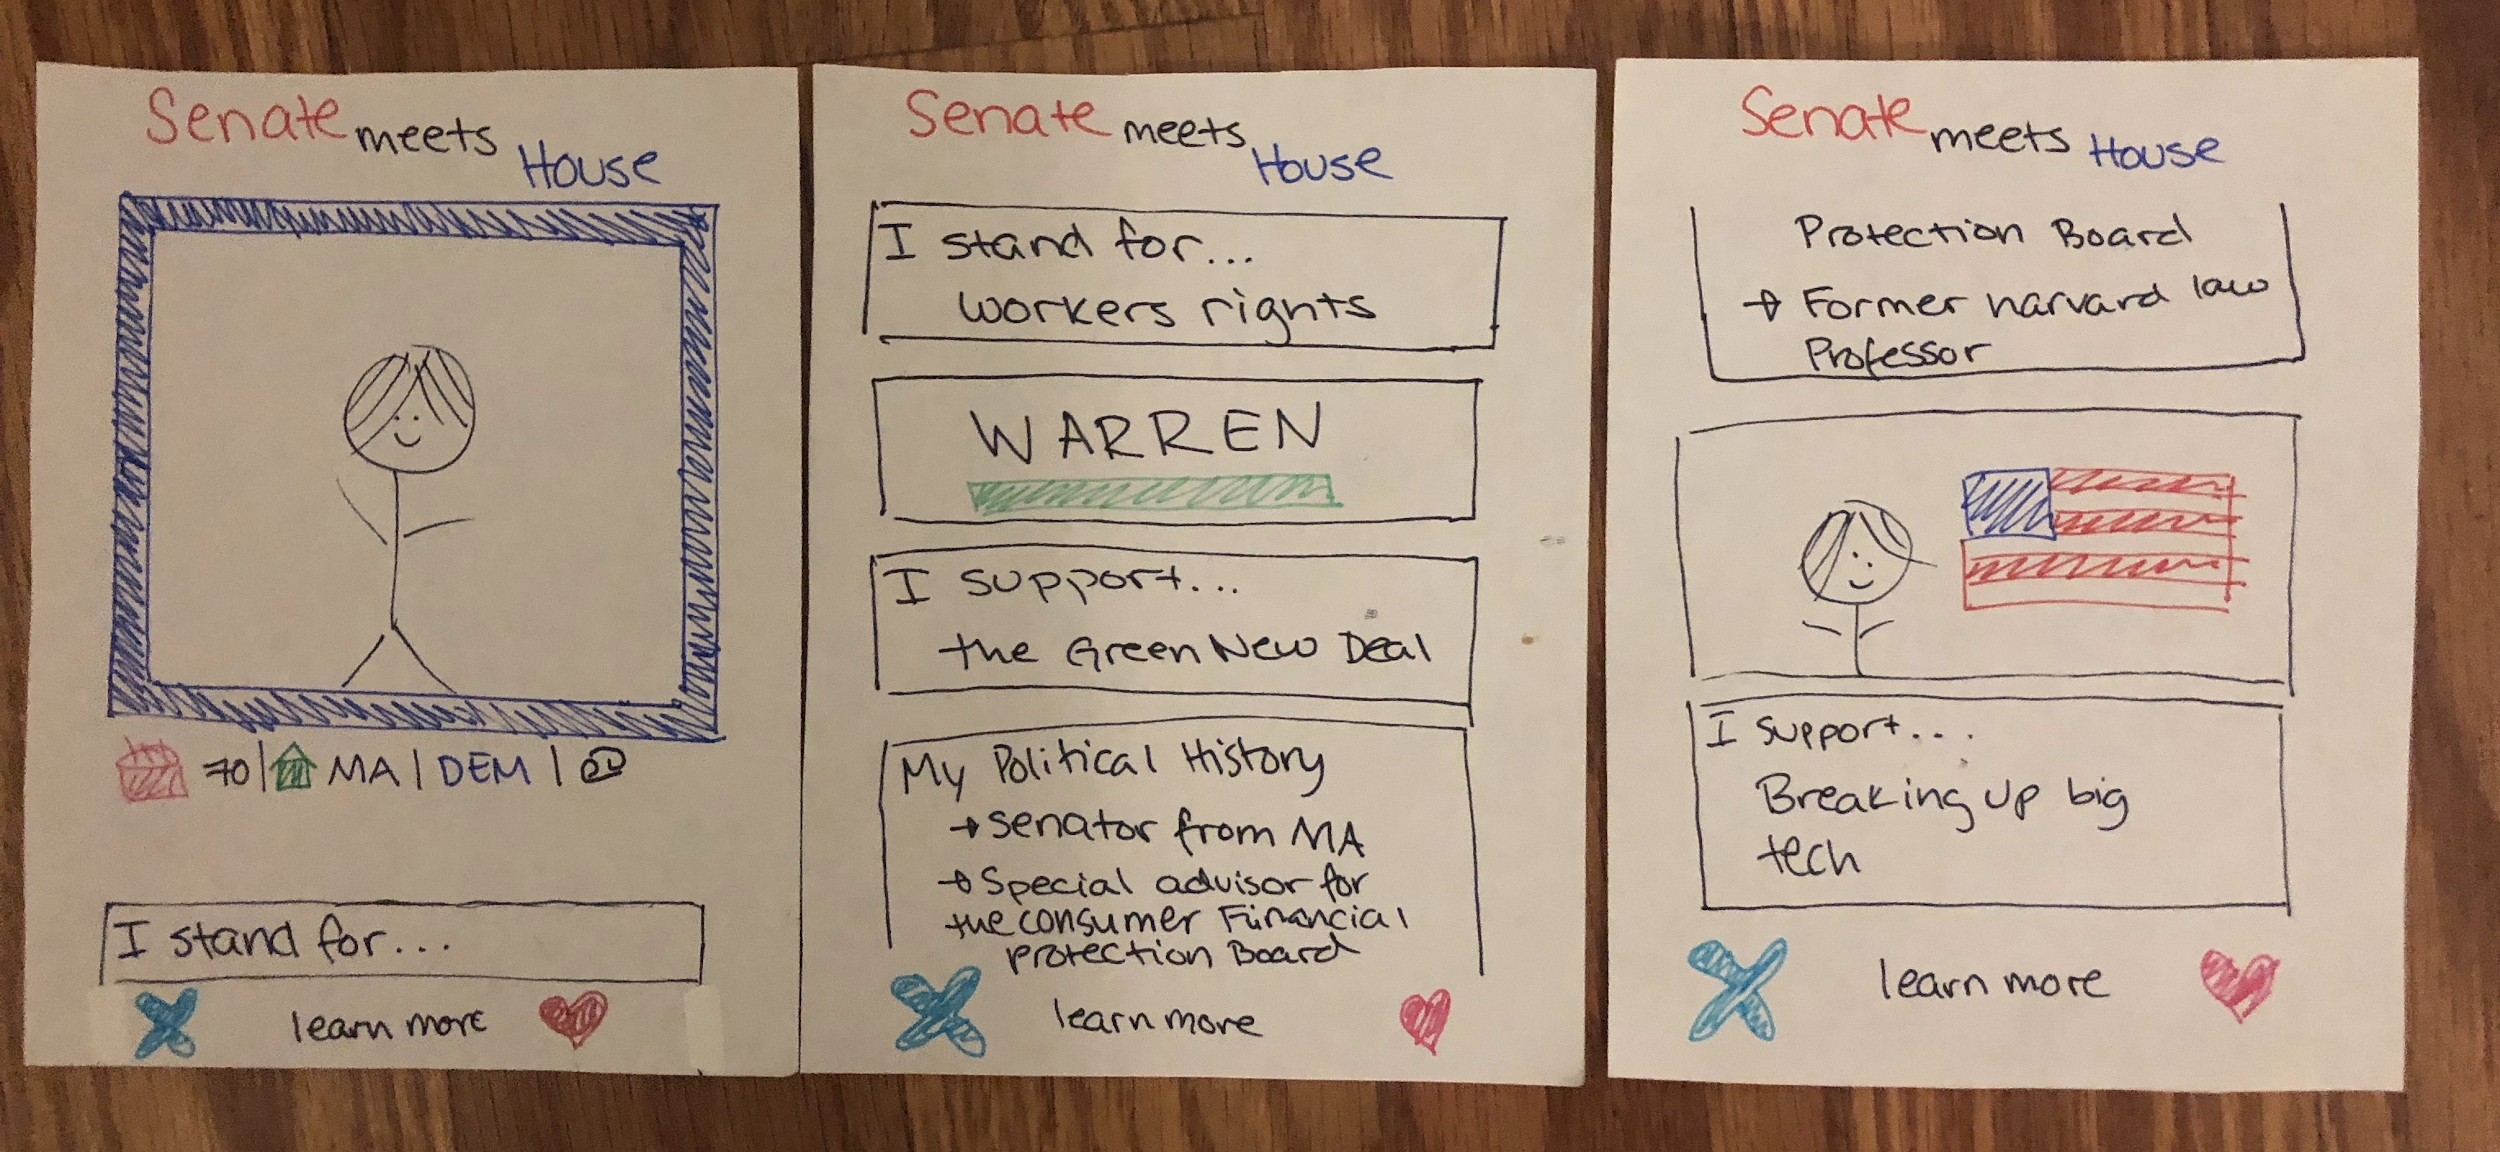 Senate meets House
70 | MA | DEM |
I stand for...
learn more
Senate meets House
I stand for...
workers rights
WARREN
I support...
the Green New Deal
My Political History
→ senator from MA
→ Special advisor for
the consumer Financial
protection Board
learn more
Senate meets House
Protection Board
→ Former harvard law
Professor
I support...
Breaking up big
tech
learn more